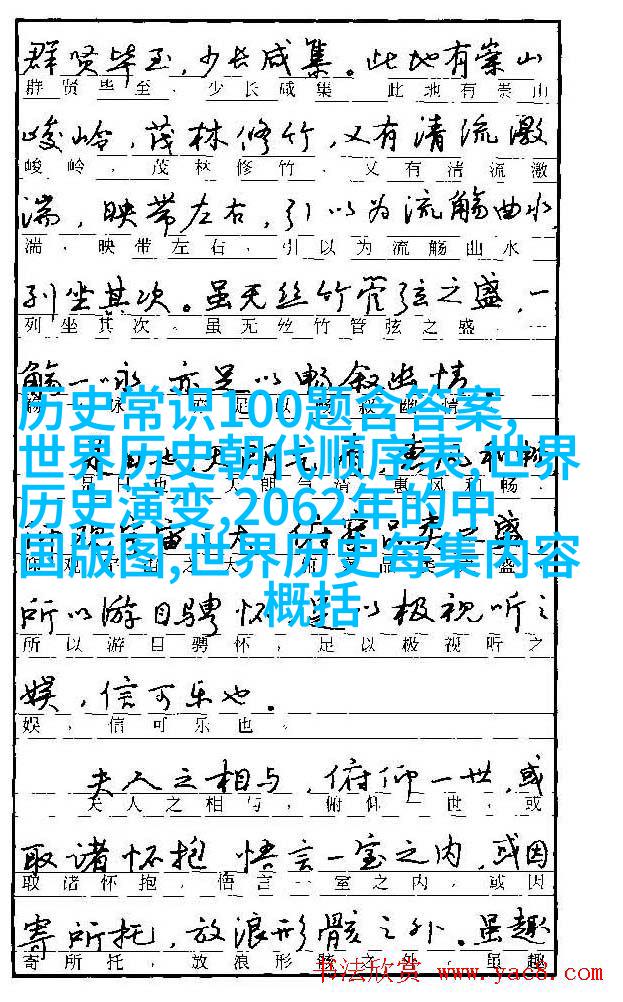 群贤毕至，少长咸集。此地有崇山
群贤毕至，少长咸集 此地有崇山
峻岭，茂林修竹，又有清流激
峻岭，茂林修竹，又有清流激
湍，映带左右，引以为流觞曲水
湍，映带左右，引以为流觞曲水
列坐其次。虽无丝竹管弦之盛，一
列坐其次。虽无丝竹管弦之盛
觞一咏 亦足以畅叙幽情。
历史常识100题含答案,
世界历史朝代顺序表,世界
历史演变,2062年的中
国版图,世界历史每集内容
概括
所以游目骋怀 足以极视听之
所以游目骋怀，足以极视听之
娱，信可乐也。
娱，信可乐也。
夫人之相与，俯仰一世，或
夫人之相与，俯仰一世，或
取诸怀抱 悟言一室之内，或因
取诸怀抱，悟言一室之内，或因
寄所托，放浪形骸之外。虽趣
寄所托，放浪形骸之外。虽趣
书法欣赏 www.yac8.com